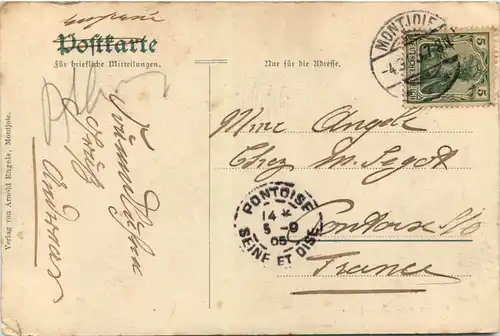 Postkarte
Für briefliche Mitteilungen.
Nur für die Adresse.
MONTJOIE
5
5
Mme Angele
Chez M. Segot
Pontoise S/O
France
PONTOISE
14 *
5 - 9
05
SEINE ET OISE
Gruß
Andreas
Verlag von Arnold Engels, Montjoie.